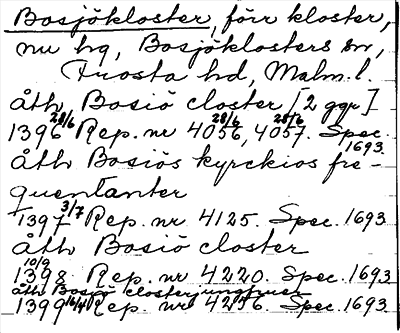 Bosjökloster, förr kloster,
nu hg, Bosjöklosters sn,
Frosta hd, Malm. l.
åth, Bosiö closter [2 ggr]
1396 28/6 Rep. nr 4056, 28/6 4057. 28/6 Spec. 1693
åth Bosiös kyrckios fre-
quentanter
1397 3/7 Rep. nr 4125. Spec. 1693
åth Bosiö closter
1398 10/9 Rep. nr 4220. Spec. 1693
åth Bosjö closter jungfruer
1399 16/4 Rep. nr 4256. Spec. 1693